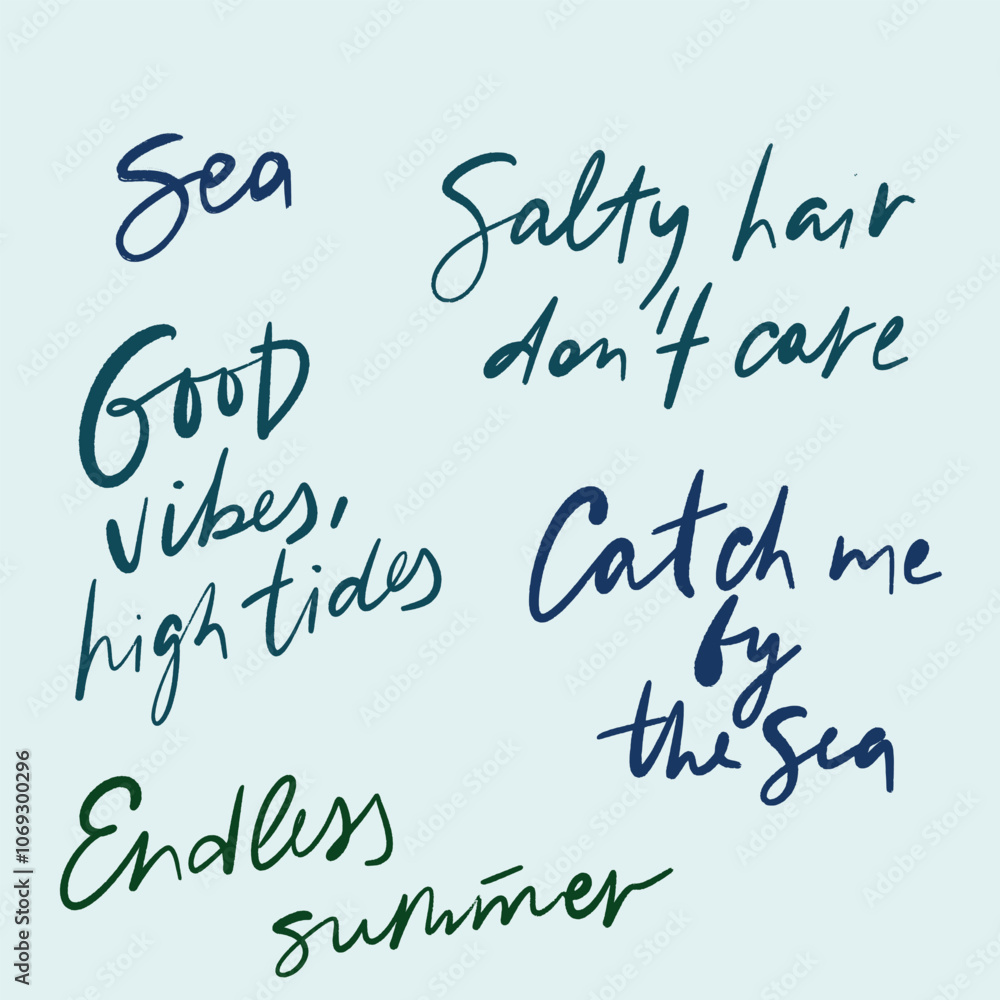 Sea
Salty hair
don't care
Good
vibes,
high tides
Catch me
by
the sea
Endless
summer
Adobe Stock | #1069300296